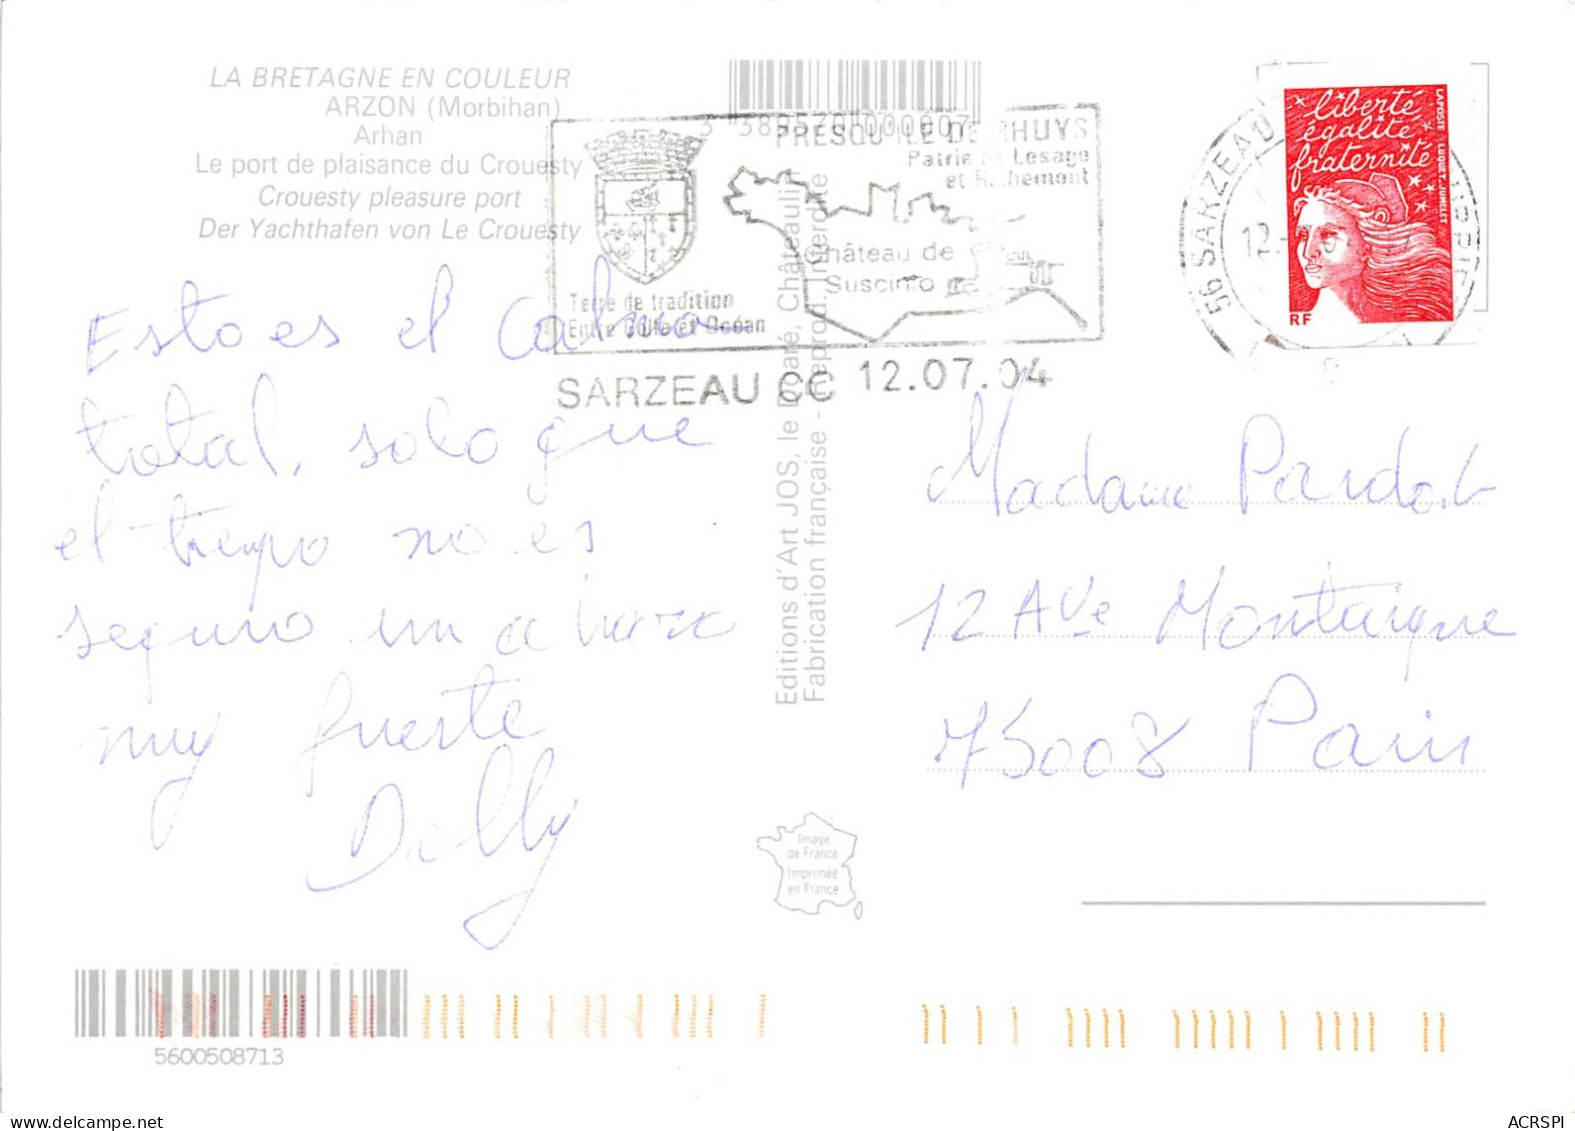 LA BRETAGNE EN COULEUR
ARZON (Morbihan)
Arhan
Le port de plaisance du Crouesty
Crouesty pleasure port
Der Yachthafen von Le Crouesty
PRESQU'ILE DE RHUYS
Patrie de Lesage
et Richemont
Château de
Suscinio
Terre de tradition
Entre Golfe et Océan
SARZEAU CC 12.07.04
56 SARZEAU
liberté
égalité
fraternité
LAPOSTE LUQUET-JUMELET
RF
Esto es el Calmo
total, solo que
el tiempo no es
seguro un
muy fuerte
Dolly
Editions d'Art JOS, le Doaré, Châteaulin
Fabrication française - Reprod. Interdite
Madame Pardot
12 AVe Montaigne
75008 Paris
Image
de France
Imprimée
en France
5600508713
ACRSPI